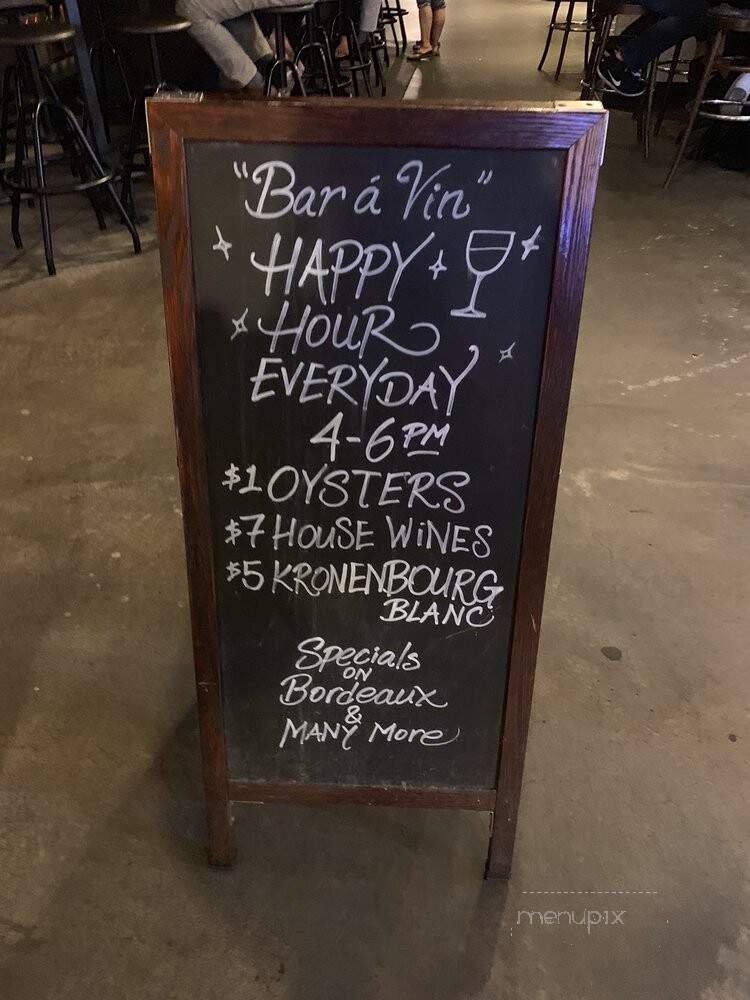 "Bar á Vin"
HAPPY
HOUR
EVERYDAY
4-6 PM
$1 OYSTERS
$7 HOUSE WINES
$5 KRONENBOURG
BLANC
Specials
ON
Bordeaux
&
MANY More
menupix